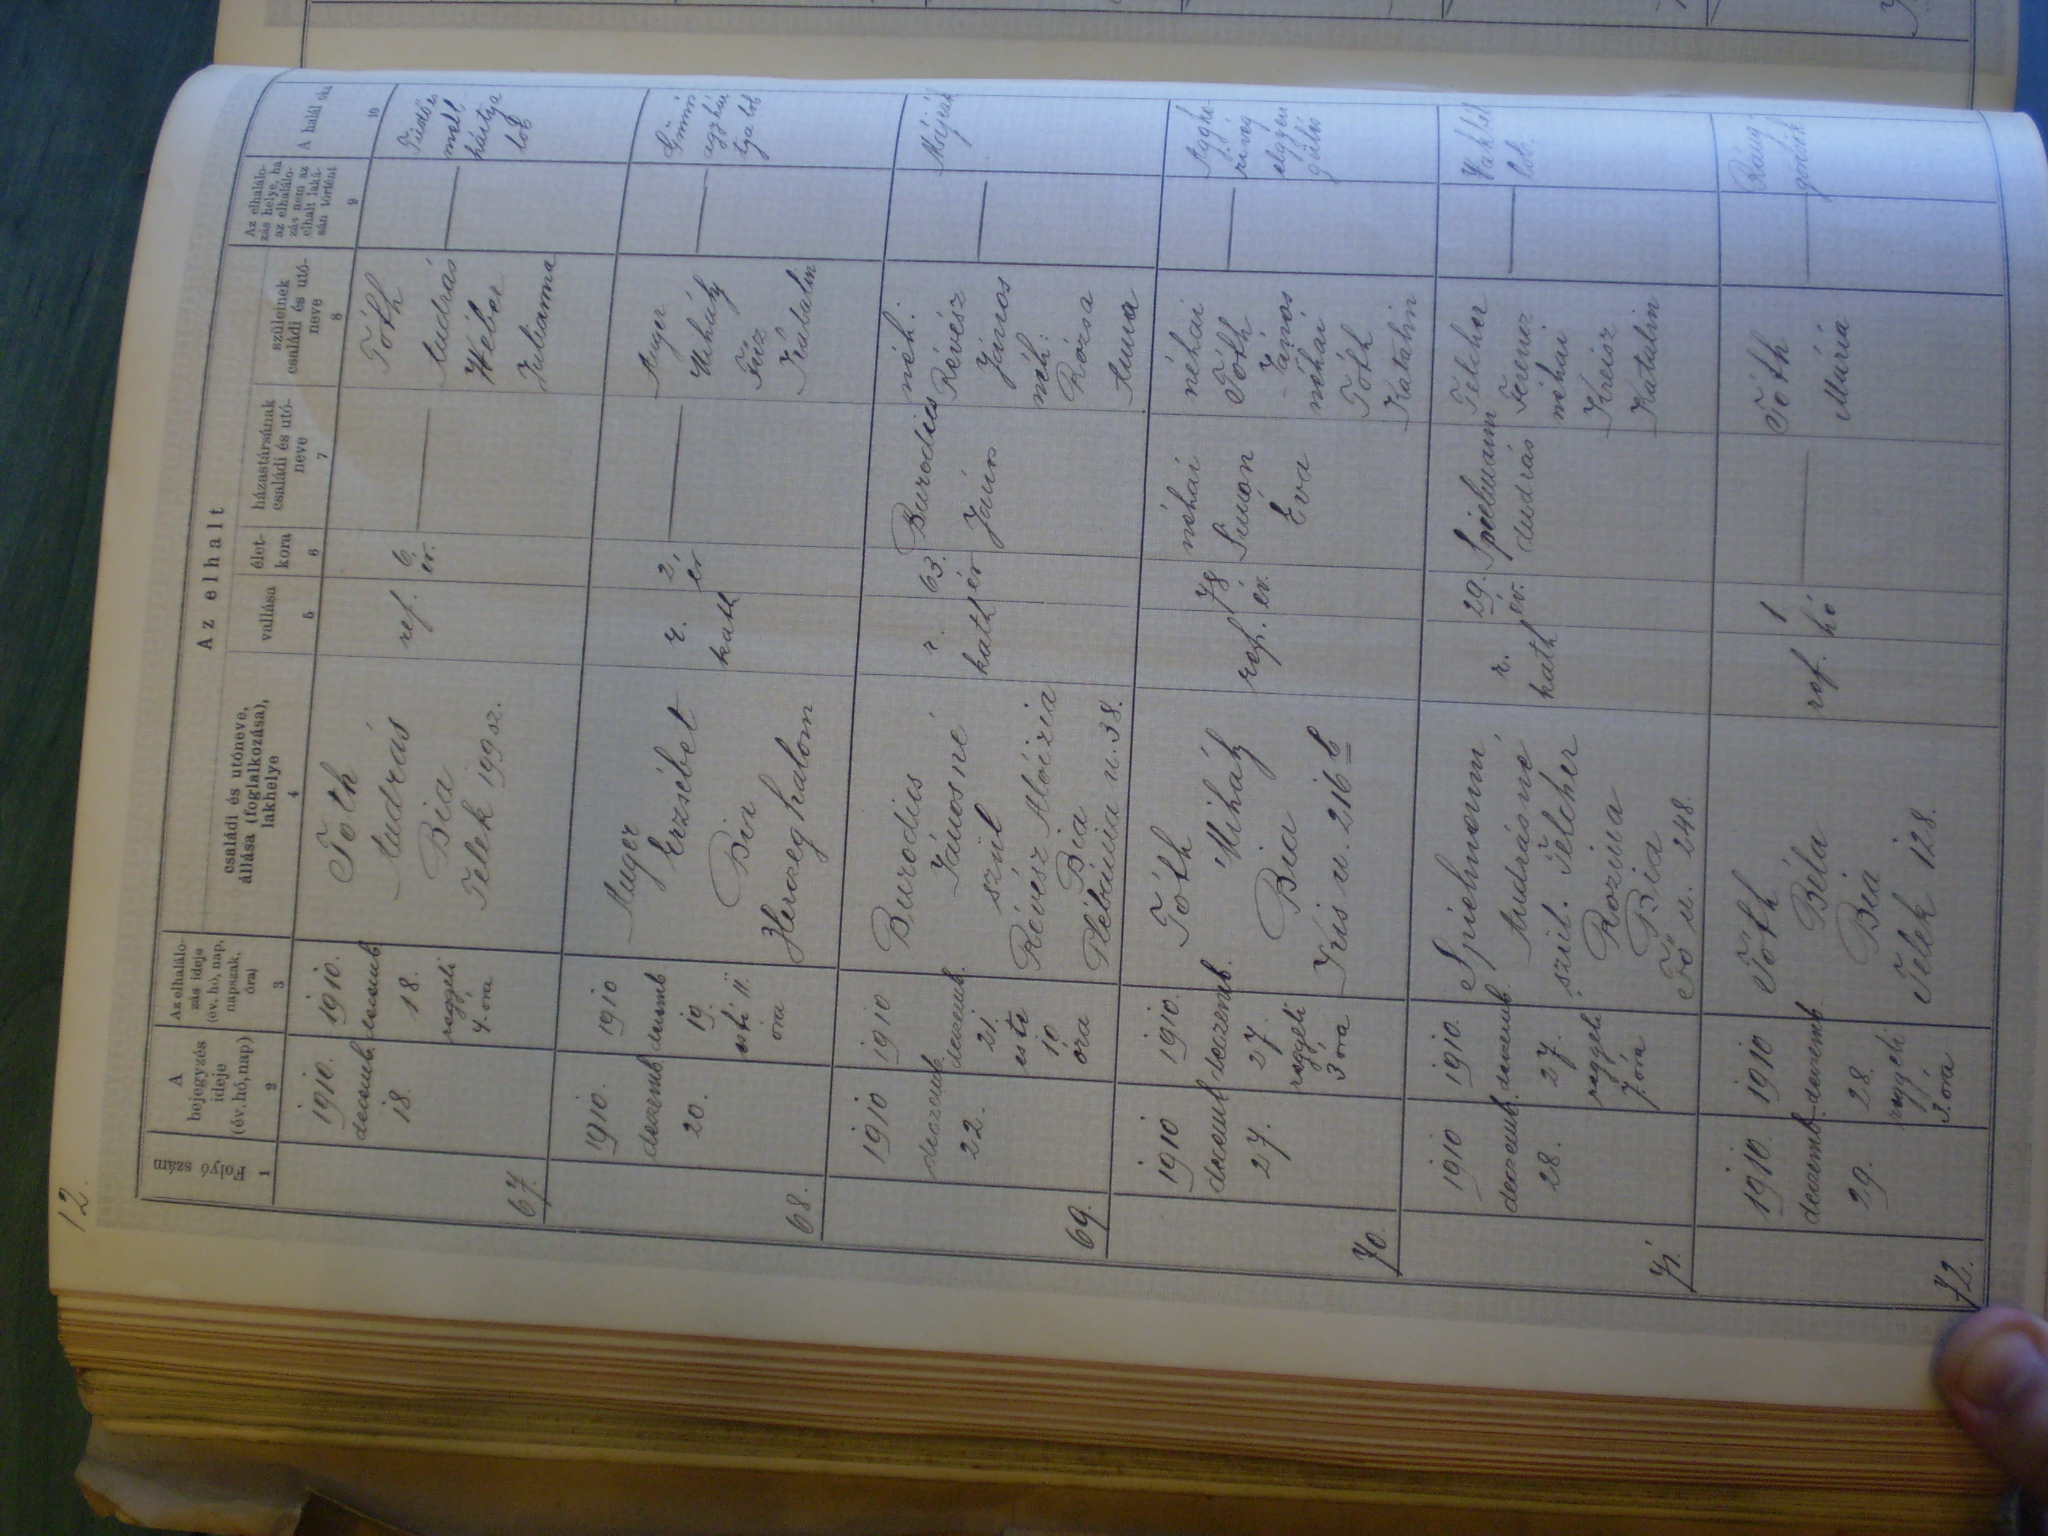 12.
Az elhalt
Folyó szám
A
bejegyzés
ideje
(év, hó, nap)
Az elhalálo-
zás ideje
(év, hó, nap,
napszak,
óra)
családi és utóneve,
állása (foglalkozása),
lakhelye
vallása
élet-
kora
házastársának
családi és utó-
neve
szüleinek
családi és utó-
neve
Az elhalálo-
zás helye, ha
az elhalálo-
zás nem az
elhalt laká-
sán történt
A halál oka
1
2
3
4
5
6
7
8
9
10
67.
1910.
decemb.
18.
1910.
decemb
18.
reggeli
4. óra
Tóth
András
Bia
Telek 199 sz.
ref.
6.
év.
Tóth
András
Weber
Julianna
Tüdő és
mell
hártya
lob
68.
1910.
dezemb
20.
1910
decemb
19.
esti 11.
óra
Auger
Erzsébet
Bia
Herczeghalom
r.
kath
2.
év
Auger
Mihály
Füz
Katalin
Gümős
agyhár
tya lob
69.
1910
deczemb.
22.
1910
deczemb.
21.
este
10
óra
Burodics
Jánosné
szül
Révész Aloizia
Bia
Plébánia u. 38.
r.
kath
63.
év
Burodics
János
néh.
Révész
János
néh.
Rózsa
Anna
Májrák
70.
1910
decemb
27.
1910.
deczemb.
27.
reggeli
3 óra
Tóth
Mihály
Bia
Kis u. 216 b
ref.
78
év.
néhai
Simon
Éva
néhai
Tóth
János
néhai
Tóth
Katalin
Aggko-
riság
elgyen
gülés
71.
1910
deczemb.
28.
1910.
dezemb.
27.
reggeli
7. óra
Spielmann
Andrásné
szül. Telcher
Rozina
Bia
Fő u. 248.
r.
kath
29.
év.
Spielmann
András
Telcher
Ferenz
néhai
Kreisz
Katalin
Vakbél
lob.
72.
1910.
dezemb.
29.
1910
dezemb
28.
reggeli
3. óra
Tóth
Béla
Bia
Telek 128.
ref.
1
hó
Tóth
Mária
Ráng
görcsök